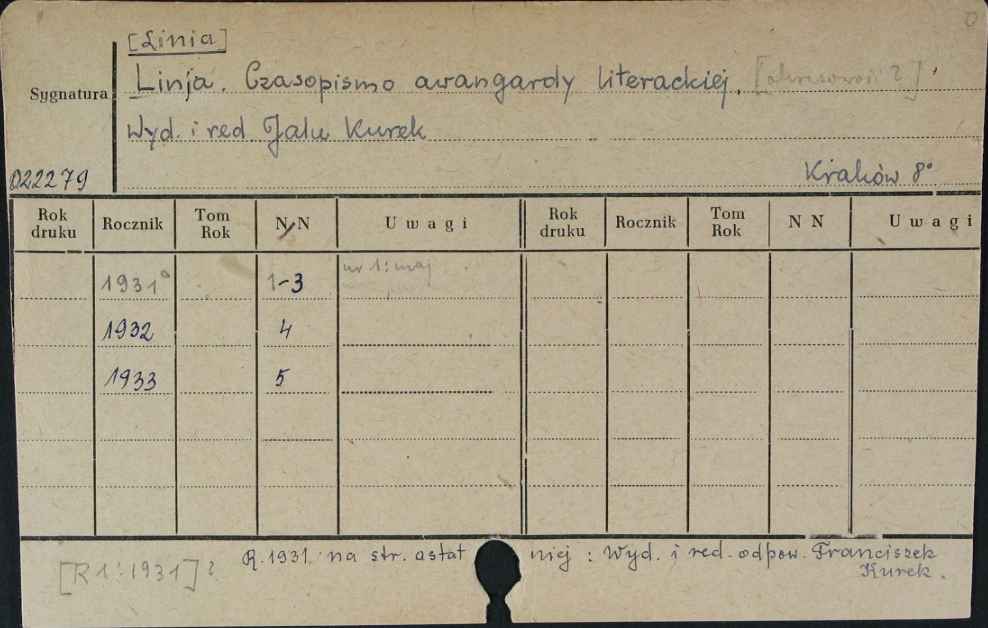 [Linia]
Linja. Czasopismo awangardy literackiej.
Sygnatura
Wyd. i red. Jalu Kurek
022279
Kraków 8°
Rok druku Rocznik Tom Rok N N Uwagi Rok druku Rocznik Tom Rok N N Uwagi
1931° 1-3 nr 1: maj
1932 4
1933 5
R. 1931. na str. ostatniej : Wyd. i red. odpow. Franciszek
Kurek.
[R 1: 1931]?